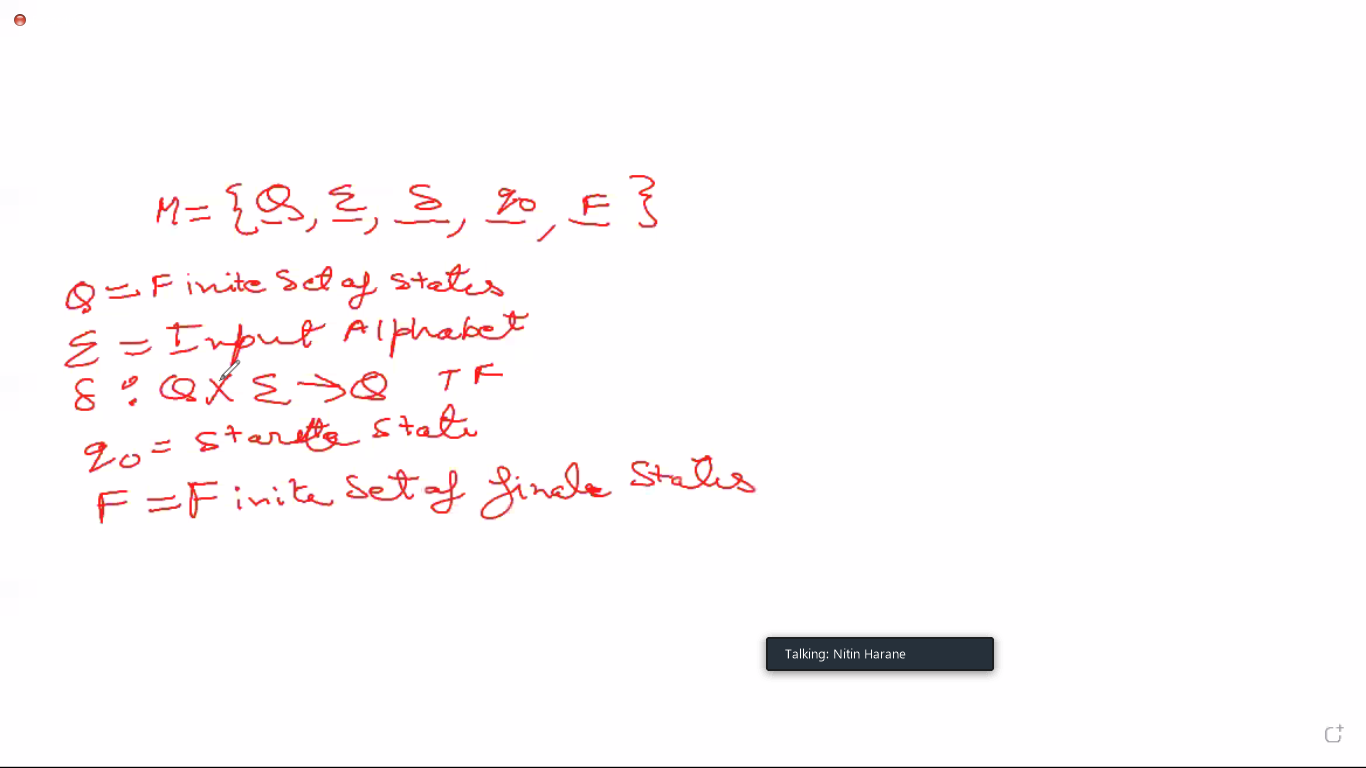 M = {Q, Σ, δ, q0, F}
Q = Finite Set of states
Σ = Input Alphabet
δ : Q X Σ → Q TF
q0 = state
F = Finite Set of States
Talking: Nitin Harane